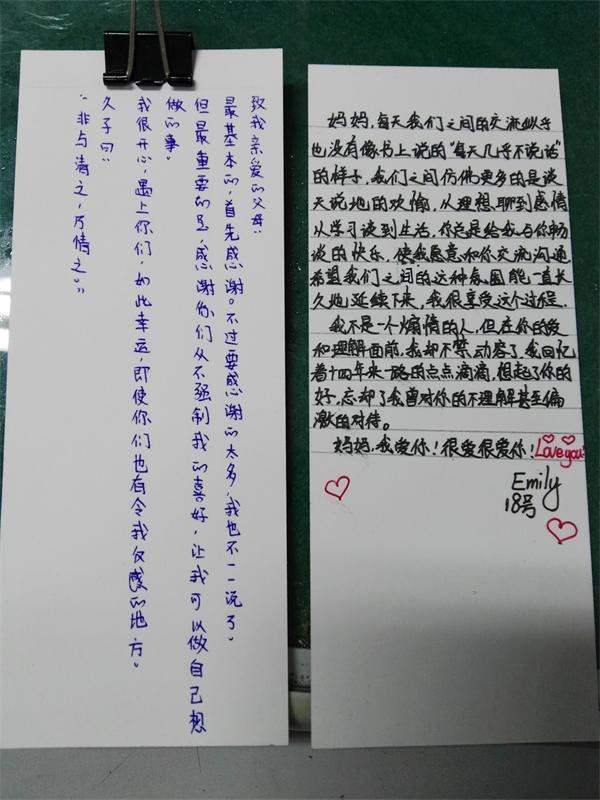 致我亲爱的父母：
最基本的，首先感谢。不过要感谢的太多，我也不一一说了。
但最重要的是，感谢你们从不强制我的喜好，让我可以做自己想
做的事。
我很开心，遇上你们，如此幸运，即使你们也有令我反感的地方。
久子曰：
“非与清之，乃情之。”
妈妈，每天我们之间的交流似乎
也没有像书上说的“每天几乎不说话”
的样子，我们之间仿佛更多的是谈
天说地的欢愉，从理想聊到感情
从学习谈到生活，你总是给我与你畅
谈的快乐，使我愿意和你交流沟通
希望我们之间的这种氛围能一直长
久地延续下来，我很享受这个过程。
我不是一个煽情的人，但在你的爱
和理解面前，我却不禁动容了，我回忆
着十四年来一路的点点滴滴，想起了你的
好，忘却了我曾对你的不理解甚至偏
激的对待。
妈妈，我爱你！很爱很爱你！Love you
Emily
18号